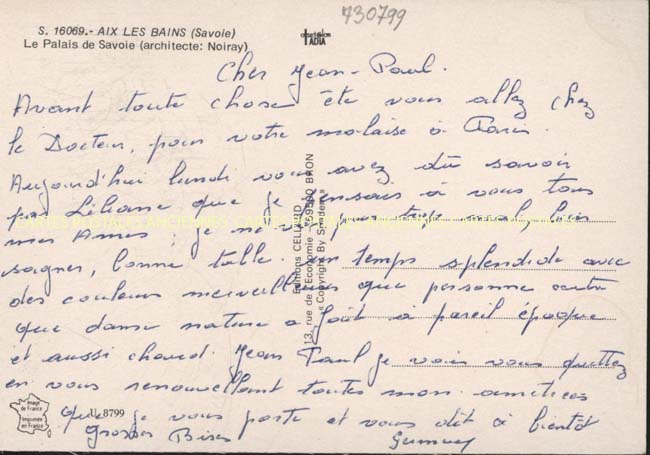 730799
S. 16069.- AIX LES BAINS (Savoie)
Le Palais de Savoie (architecte: Noiray)
Cher Jean-Paul.
Avant toute chose éte vous allez chez
le Docteur, pour votre malaise à Paris.
Aujourd'hui lundi vous avez dû savoir
par Liliane que je pensais à vous tous
mes Amies, je ne vais pas trop mal, bien
soigner, bonne table. un temps splendide avec
des couleurs merveilleuses que personne autre
que dame nature a fait à pareil époque
et aussi chaud. Jean Paul je vais vous quittez
en vous renouvellant toutes mon amities
que je vous porte et vous dit à bientôt
Grosses Bises
Editions CELLARD
13, rue de l'Economie - 69500 BRON
« Copyright By Spadem »
Image
de France
Imprimée
en France
U. 8799